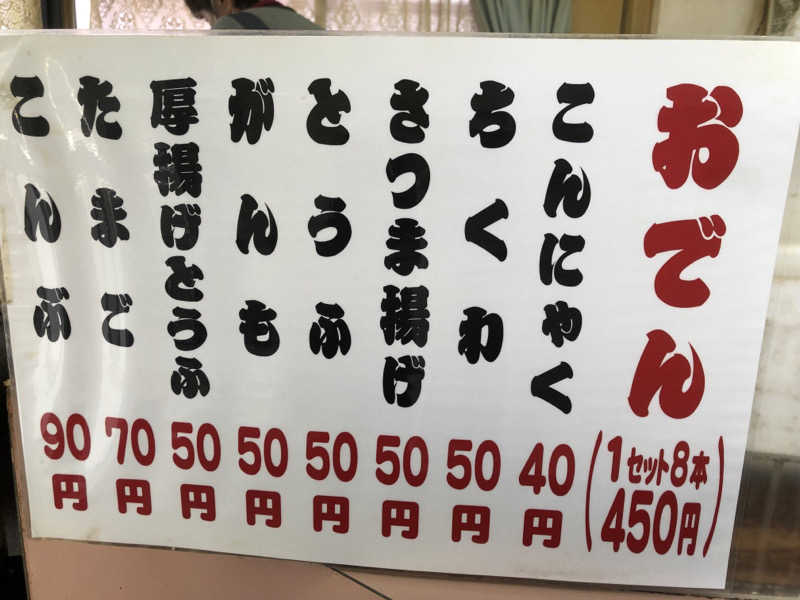 おでん
(1セット8本
450円)
こんにゃく
40円
ちくわ
50円
さつま揚げ
50円
とうふ
50円
がんも
50円
厚揚げとうふ
50円
たまご
70円
こんぶ
90円